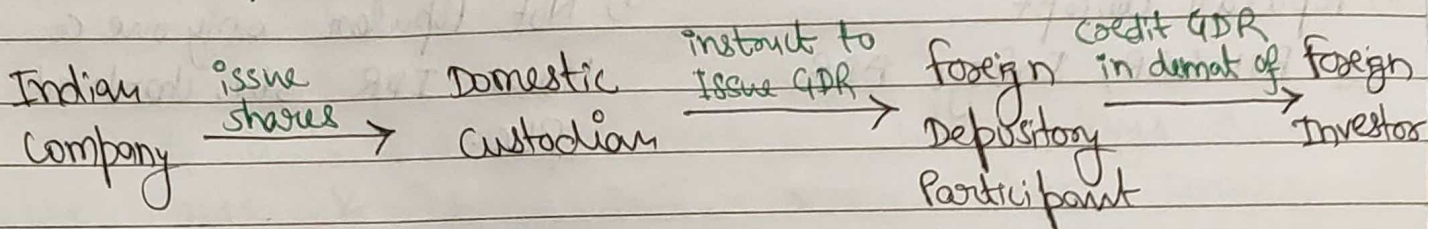 Indian Company
issue shares
Domestic Custodian
instruct to Issue GDR
foreign Depository Participant
credit GDR in demat of
foreign Investor